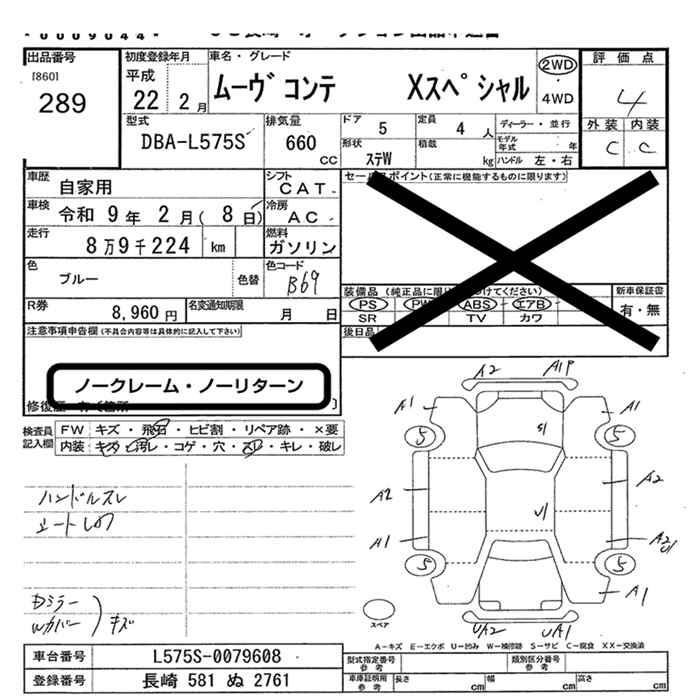 出品番号
[860]
289
初度登録年月
平成
22 2月
車名・グレード
ムーヴ コンテ Xスペシャル
2WD
・
4WD
評価点
4
外装 内装
C C
型式
DBA-L575S
排気量
660
cc
ドア
5
定員
4 人
ディーラー・並行
モデル
年式
年
形状
ステW
積載
kg
ハンドル 左・右
車歴
自家用
シフト
CAT
車検
令和 9年 2月( 8日)
冷房
AC
走行
8万9千224 km
燃料
ガソリン
色
ブルー
色替
色コード
B69
R券
8,960円
名変通知期限
月 日
セールスポイント(正常に機能するものに限ります)
装備品
PS PW ABS エアB
SR TV カワ
新車保証書
有・無
後日品
注意事項申告欄(不具合内容等は具体的に記入して下さい)
ノークレーム・ノーリターン
検査員
記入欄
FW キズ・飛石・ヒビ割・リペア跡・×要
内装 キズ・汚レ・コゲ・穴・スレ・キレ・破レ
ハンドルスレ
Dミラー
Wカバー
キズ
A2 A1P
A1 A1
5 5
S1
A2 A2
U1
A1 A2
U1
5 5
A1
UA2 UA1
スペア
A-キズ E-エクボ U-凹み W-補修跡 S-サビ C-腐食 XX-交換済
車台番号
L575S-0079608
型式指定番号
参考
類別区分番号
参考
登録番号
長崎 581 ぬ 2761
車庫証明用
参考
長さ cm 幅 cm 高さ cm